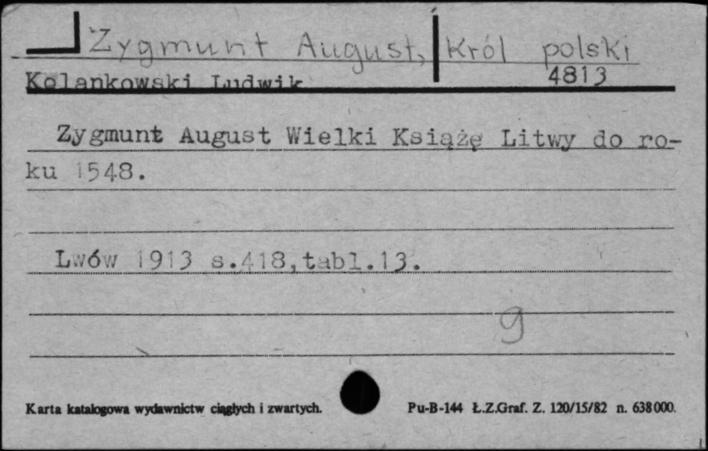 Zygmunt August, Król polski
Kolankowski Ludwik 4813
Zygmunt August Wielki Książę Litwy do ro-
ku 1548.
Lwów 1913 s.418,tabl.13.
g
Karta katalogowa wydawnictw ciągłych i zwartych. Pu-B-144 Ł.Z.Graf. Z. 120/15/82 n. 638000.